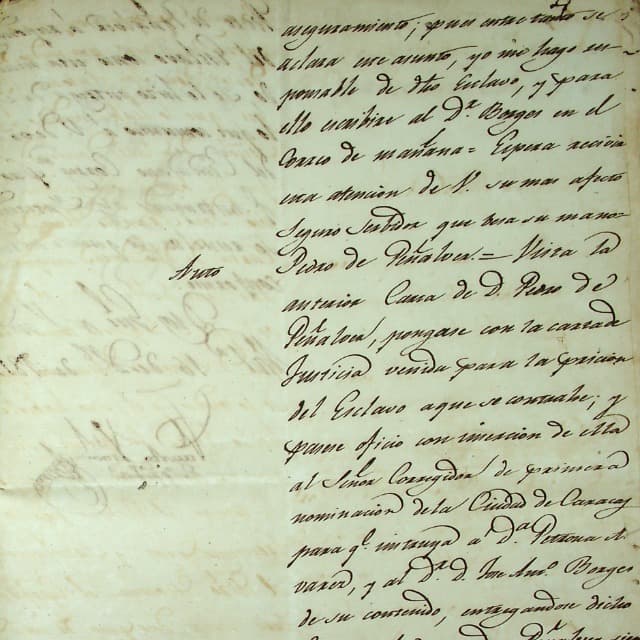 aseguramiento; pues entre tanto se
aclara ese asunto, yo me hago res
ponsable de dho Esclavo, y para
ello escribire al Dr. Borges en el
Correo de mañana = Espera recivir
esa atencion de V. su mas afecto
Seguro Servidor que besa su mano=
Pedro de Peñaloza.= Vista la
Auto
anterior Carta de D. Pedro de
Peñaloza, pongase con la carta de
Justicia venida para la prision
del Esclavo a que se contrahe; y
pasese oficio con insercion de ella
al Señor Corregidor de primera
nominacion de la Ciudad de Caracas
para qe. instruya a Da. Petrona Al
varez, y al Dr. D. Jose Anto. Borges
de su contenido, entregandose dicho